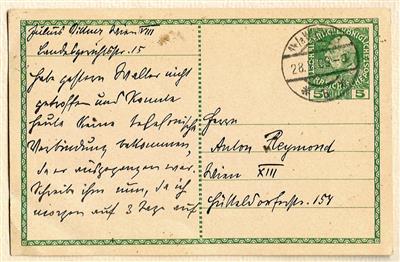 Julius Bittner Wien VIII
Landesgerichtsstr. 15
Habe gestern Walter nicht
getroffen und konnte
heute keine telefonische
Verbindung bekommen,
da er ausgegangen war.
Schreibe ihm nun, da ich
morgen auf 3 Tage auf
28.
5 5
Herrn
Anton Reymond
Wien XIII
Hütteldorferstr. 154